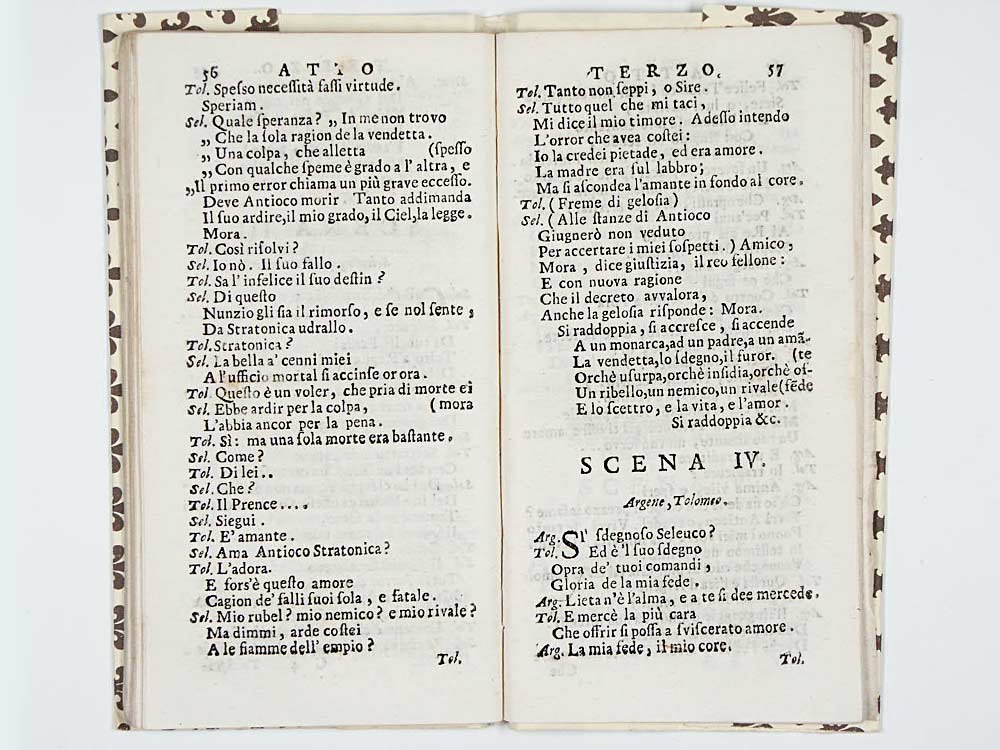 56 ATTO
Tol. Speſſo neceſſità faſſi virtude.
Speriam.
Sel. Quale ſperanza? „ In me non trovo
„ Che la ſola ragion de la vendetta.
„ Una colpa, che alletta (ſpeſſo
„ Con qualche ſpeme è grado a l' altra, e
„Il primo error chiama un più grave ecceſſo.
Deve Antioco morir. Tanto addimanda
Il ſuo ardire, il mio grado, il Ciel, la legge.
Mora.
Tol. Così riſolvi?
Sel. Io nò. Il ſuo fallo.
Tol. Sa l' infelice il ſuo deſtin?
Sel. Di queſto
Nunzio gli ſia il rimorſo, e ſe nol ſente,
Da Stratonica udrallo.
Tol. Stratonica?
Sel. La bella a' cenni miei
A l'ufficio mortal ſi accinſe or ora.
Tol. Queſto è un voler, che pria di morte ei
Sel. Ebbe ardir per la colpa, (mora
L'abbia ancor per la pena.
Tol. Sì: ma una ſola morte era baſtante.
Sel. Come?
Tol. Di lei..
Sel. Che?
Tol. Il Prence....
Sel. Siegui.
Tol. E' amante.
Sel. Ama Antioco Stratonica?
Tol. L'adora.
E forſ'è queſto amore
Cagion de' falli ſuoi ſola, e fatale.
Sel. Mio rubel? mio nemico? e mio rivale?
Ma dimmi, arde coſtei
A le fiamme dell' empio?
Tol.
TERZO. 57
Tol. Tanto non ſeppi, o Sire.
Sel. Tutto quel che mi taci,
Mi dice il mio timore. Adeſſo intendo
L'orror che avea coſtei:
Io la credei pietade, ed era amore.
La madre era ſul labbro;
Ma ſi aſcondea l'amante in fondo al core.
Tol. (Freme di geloſia)
Sel. (Alle ſtanze di Antioco
Giugnerò non veduto
Per accertare i miei ſoſpetti.) Amico,
Mora, dice giuſtizia, il reo fellone:
E con nuova ragione
Che il decreto avvalora,
Anche la geloſia riſponde: Mora.
Si raddoppia, ſi accreſce, ſi accende
A un monarca, ad un padre, a un amã-
La vendetta, lo ſdegno, il furor. (te
Orchè uſurpa, orchè inſidia, orchè of-
Un ribello, un nemico, un rivale (fẽde
E lo ſcettro, e la vita, e l'amor.
Si raddoppia &c.
SCENA IV.
Argene, Tolomeo.
Arg. SI' ſdegnoſo Seleuco?
Tol. Ed è 'l ſuo ſdegno
Opra de' tuoi comandi,
Gloria de la mia fede.
Arg. Lieta n'è l'alma, e a te ſi dee mercede.
Tol. E mercè la più cara
Che offrir ſi poſſa a ſviſcerato amore.
Arg. La mia fede, il mio core.
Tol.